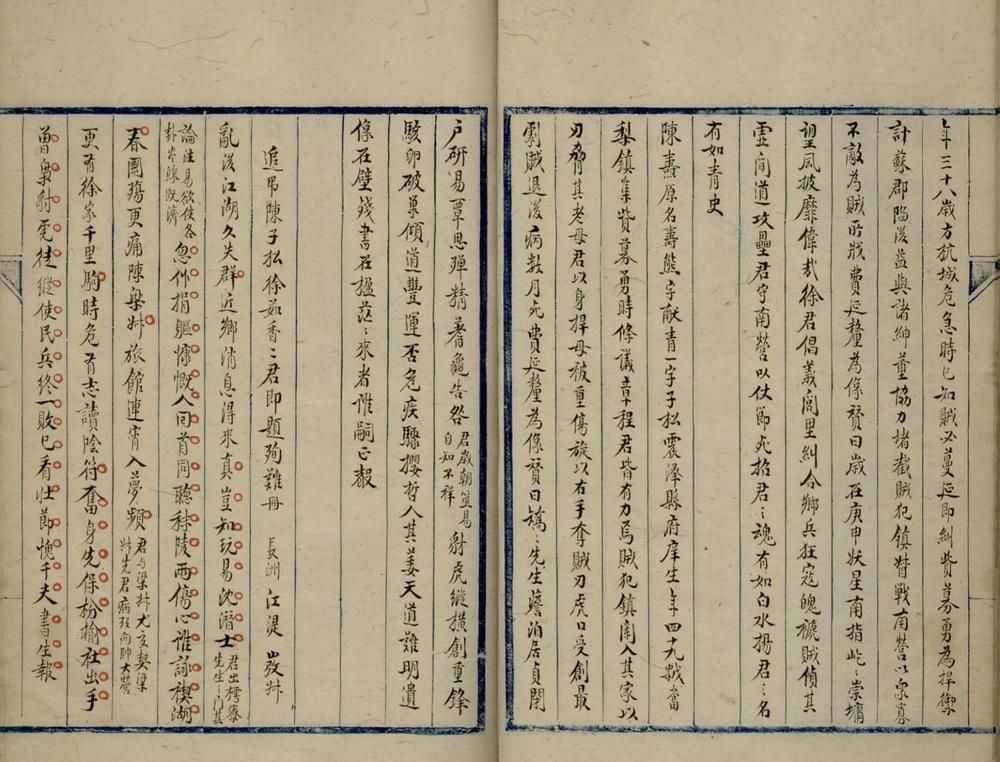 年三十八歲方杭城危急時已知賊必蔓延即糾貲募勇為捍禦
計蘇郡陷後益與諸紳董協力堵截賊犯鎮督戰南營以眾寡
不敵為賊所戕費延釐為像贊曰歲在庚申妖星南指屹〻崇墉
望風披靡偉哉徐君倡義閭里糾合鄉兵狂寇魄褫賊偵其
虛間道攻壘君守南營以仗節死招君〻魂有如白水揚君〻名
有如青史
陳燾原名壽熊字獻青一字子松震澤縣府庠生年四十九賊擾
梨鎮集貲募勇時條議章程君皆有力焉賊犯鎮闖入其家以
刃脅其老母君以身捍母被重傷旋以右手奪賊刃虎口受創最
劇賊退後病數月死費延釐為像贊曰矯〻先生澹泊居貞閉
戶研易覃思殫精蓍龜告咎君歲朝筮易自知不祥射虎縱橫創重鋒
駭卵破巢傾道豐運否危疾驟攖哲人其萎天道難明遺
像在壁殘書在楹茫〻來者誰嗣正聲
追弔陳子松徐茹香二君即題殉難冊　長洲　江湜　弢叔
亂後江湖久失群近鄉消息得來真豈知玩易沈潛士君出樗寮先生之門其
論注易欲使各卦皆歸既濟忽作捐軀慷慨人回首同聽秣陵雨傷心誰詠禊湖
春國殤更痛陳梁叔旅館連宵入夢頻君與梁叔尤交契梁叔先君病歿向帥大營
更有徐家千里駒時危有志讀陰符奮身先保枌榆社出手
曾梟射雕徒縱使民兵終一敗已看壯節愧千夫書生報